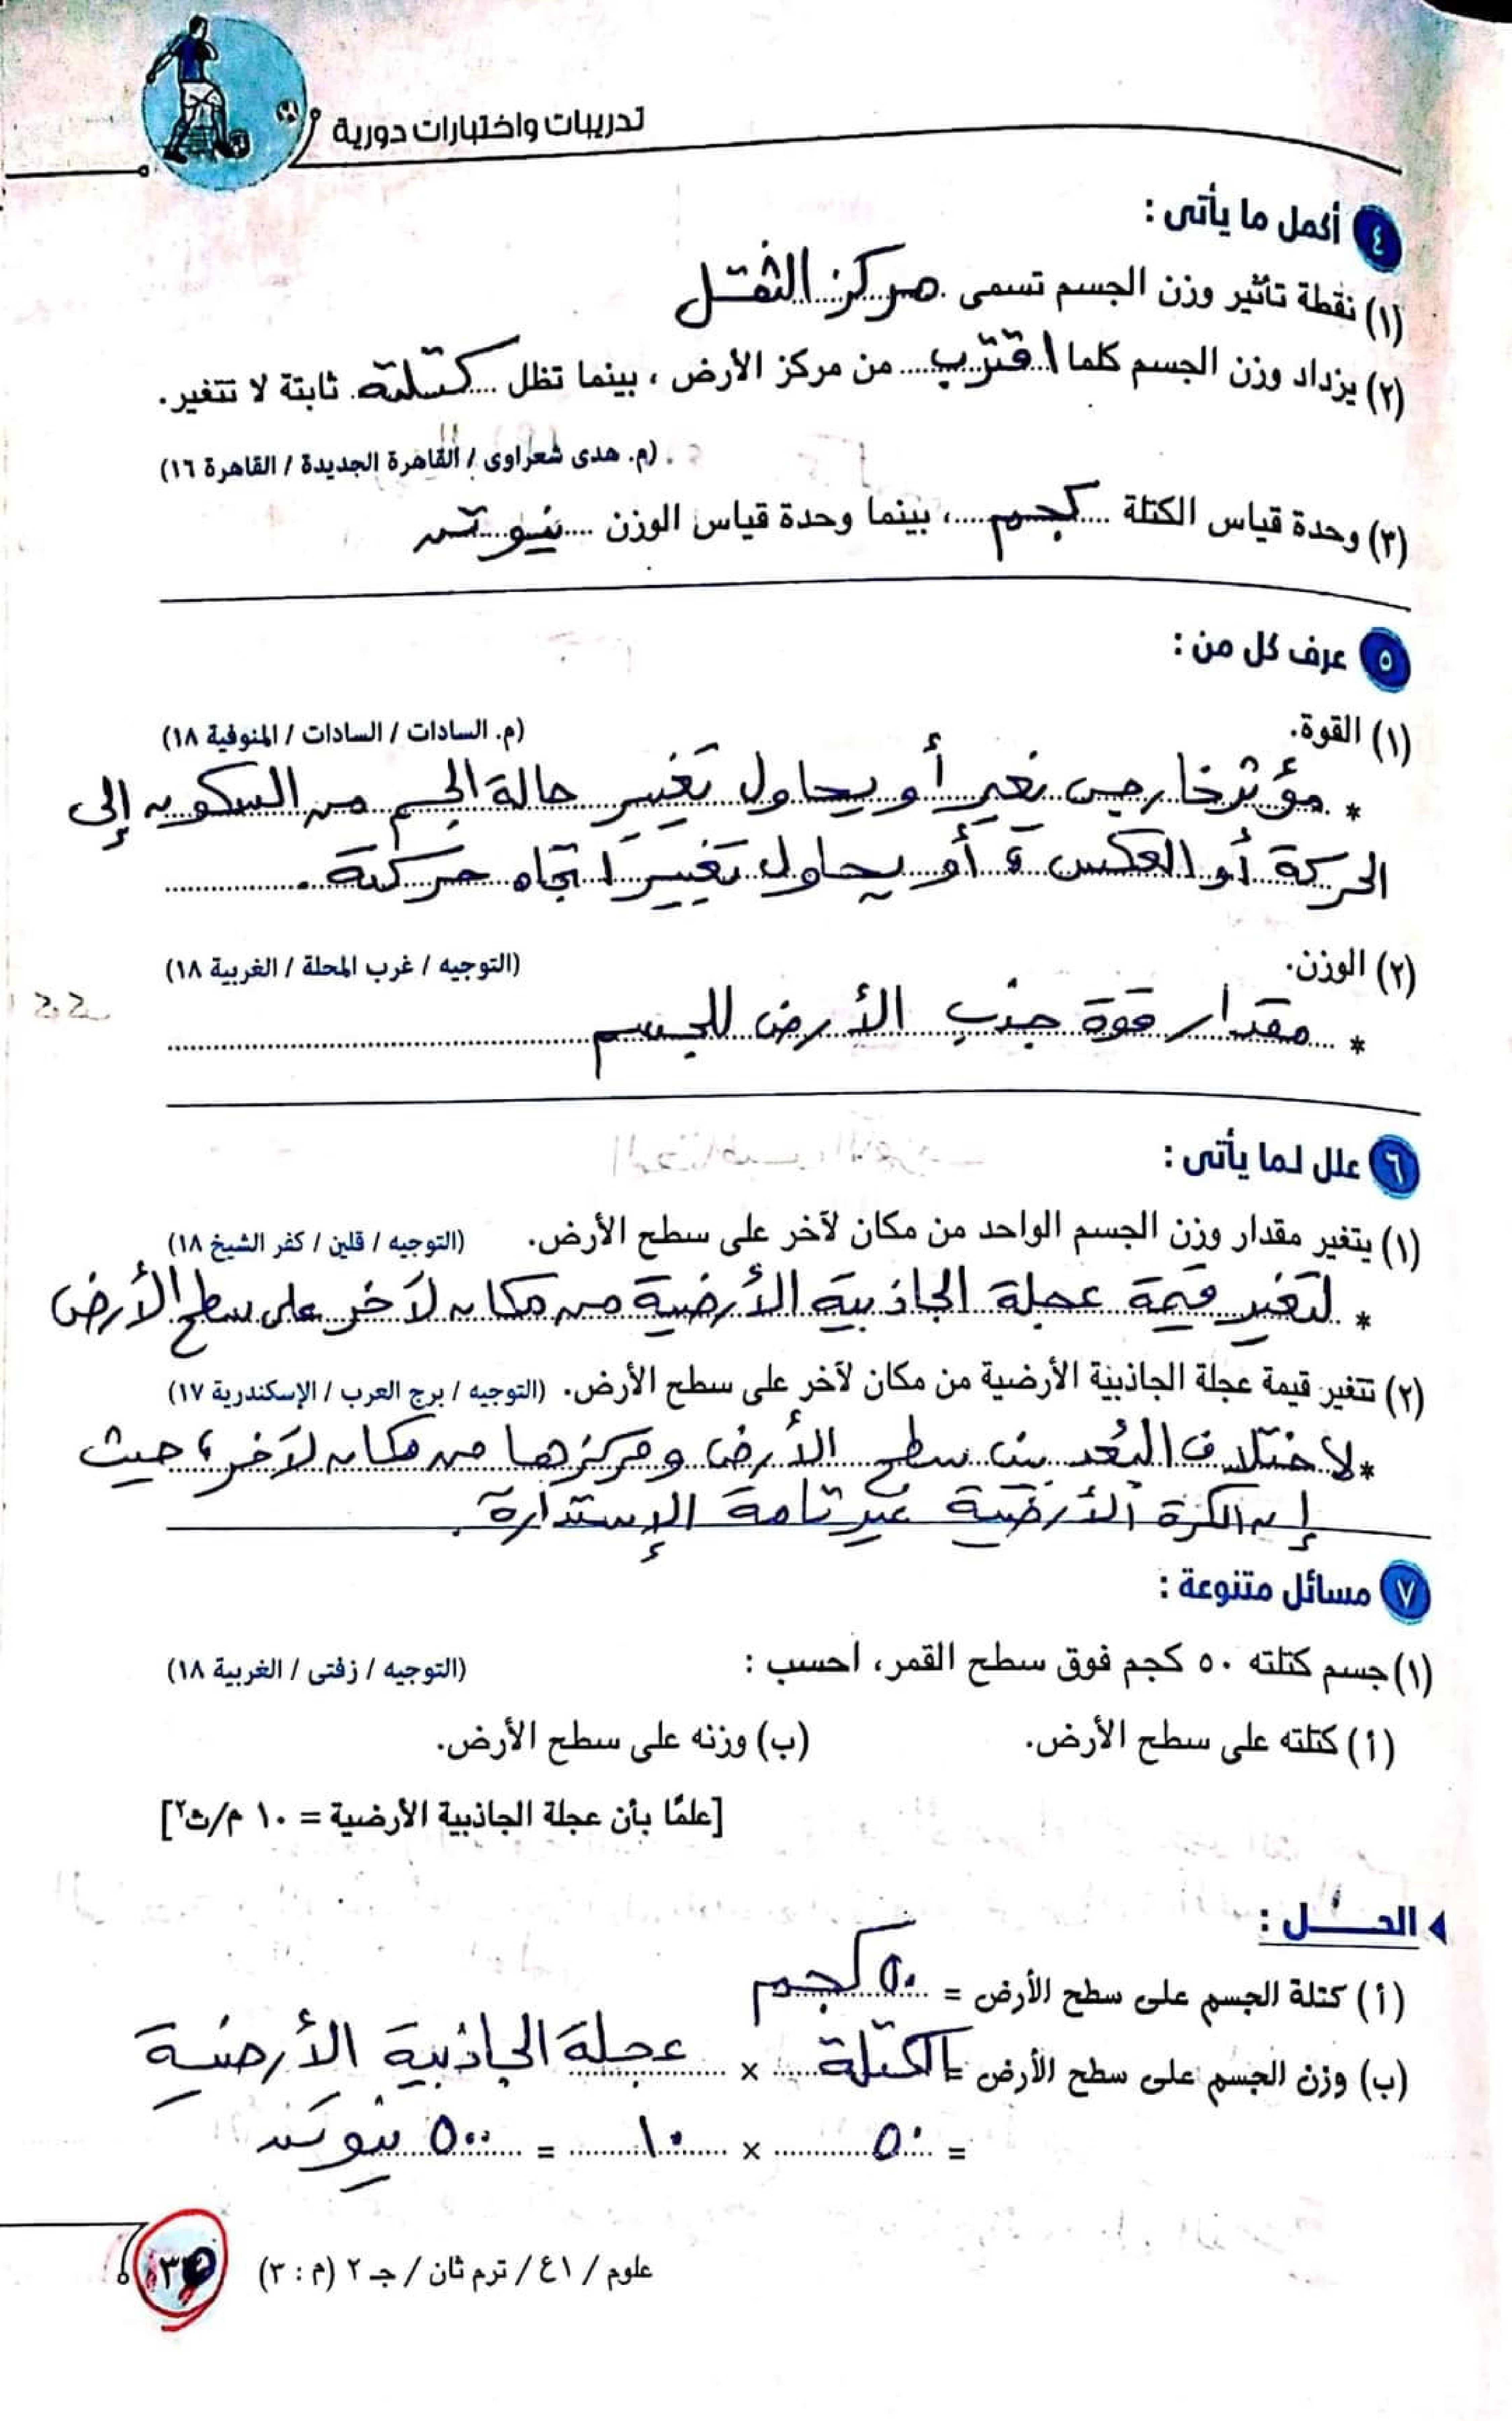 تدريبات واختبارات دورية
٤ أكمل ما يأتى :
(١) نقطة تأثير وزن الجسم تسمى مركز الثقل
(٢) يزداد وزن الجسم كلما اقترب من مركز الأرض ، بينما تظل كتلته ثابتة لا تتغير.
(م. هدى شعراوى / القاهرة الجديدة / القاهرة ١٦)
(٣) وحدة قياس الكتلة كجم ، بينما وحدة قياس الوزن نيوتن
٥ عرف كل من :
(١) القوة. (م. السادات / السادات / المنوفية ١٨)
* مؤثر خارجى يغير أو يحاول تغيير حالة الجسم من السكون إلى
الحركة أو العكس ، أو يحاول تغيير اتجاه حركته .
(٢) الوزن. (التوجيه / غرب المحلة / الغربية ١٨)
* مقدار قوة جذب الأرض للجسم
٦ علل لما يأتى :
(١) يتغير مقدار وزن الجسم الواحد من مكان لآخر على سطح الأرض. (التوجيه / قلين / كفر الشيخ ١٨)
* لتغير قيمة عجلة الجاذبية الأرضية من مكان لآخر على سطح الأرض
(٢) تتغير قيمة عجلة الجاذبية الأرضية من مكان لآخر على سطح الأرض. (التوجيه / برج العرب / الإسكندرية ١٧)
* لاختلاف البُعد بين سطح الأرض ومركزها من مكان لآخر ، حيث
إن الكرة الأرضية غير تامة الإستدارة .
٧ مسائل متنوعة :
(١) جسم كتلته ٥٠ كجم فوق سطح القمر، احسب : (التوجيه / زفتى / الغربية ١٨)
(أ) كتلته على سطح الأرض. (ب) وزنه على سطح الأرض.
[علمًا بأن عجلة الجاذبية الأرضية = ١٠ م/ث٢]
الحـــل :
(أ) كتلة الجسم على سطح الأرض = ٥٠ كجم
(ب) وزن الجسم على سطح الأرض = الكتلة × عجلة الجاذبية الأرضية
= ٥٠ × ١٠ = ٥٠٠ نيوتن
علوم / ١ع / ترم ثان / جـ ٢ (م : ٣)